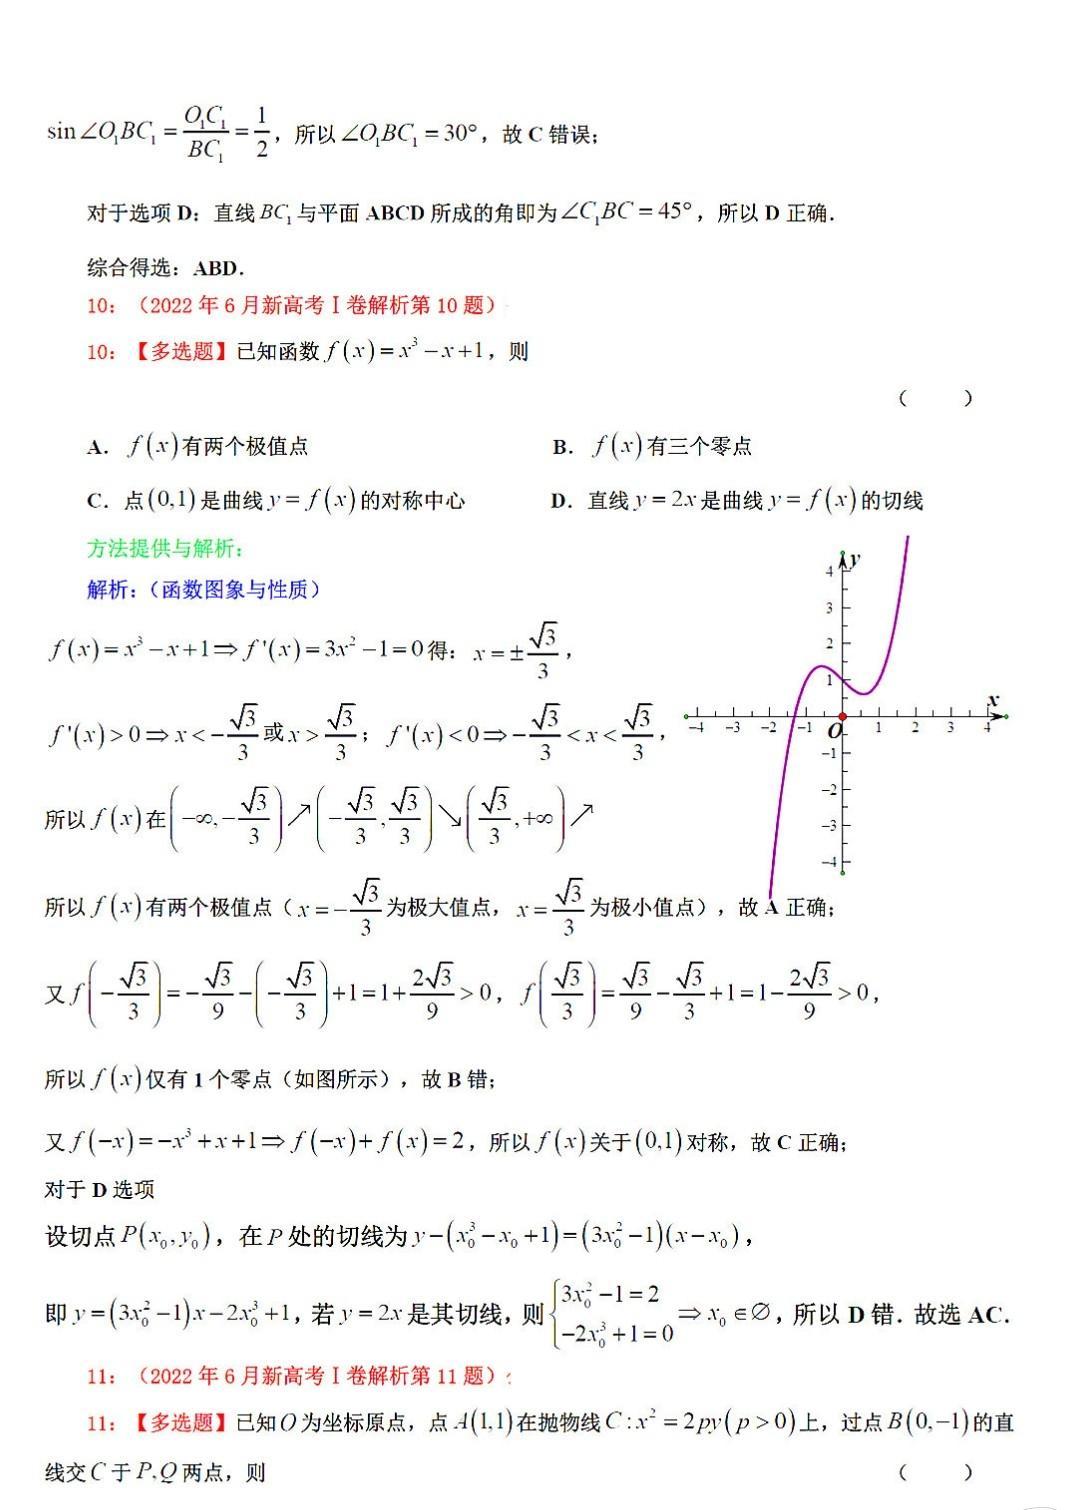 sin∠O₁BC₁ = O₁C₁/BC₁ = 1/2，所以∠O₁BC₁ = 30°，故 C 错误；
对于选项 D：直线 BC₁ 与平面 ABCD 所成的角即为∠C₁BC = 45°，所以 D 正确．
综合得选：ABD．
10：（2022 年 6 月新高考 I 卷解析第 10 题）
10：【多选题】已知函数 f(x) = x³ − x + 1，则
（　　）
A． f(x)有两个极值点　B． f(x)有三个零点
C．点(0,1)是曲线 y = f(x)的对称中心　D．直线 y = 2x 是曲线 y = f(x)的切线
方法提供与解析：
解析：（函数图象与性质）
f(x) = x³ − x + 1 ⇒ f'(x) = 3x² − 1 = 0 得：x = ±√3/3，
f'(x) > 0 ⇒ x < −√3/3 或 x > √3/3；f'(x) < 0 ⇒ −√3/3 < x < √3/3，
所以 f(x)在(−∞, −√3/3)↗(−√3/3, √3/3)↘(√3/3, +∞)↗
所以 f(x)有两个极值点（x = −√3/3 为极大值点，x = √3/3 为极小值点），故 A 正确；
又 f(−√3/3) = −√3/9 − (−√3/3) + 1 = 1 + 2√3/9 > 0，f(√3/3) = √3/9 − √3/3 + 1 = 1 − 2√3/9 > 0，
所以 f(x)仅有 1 个零点（如图所示），故 B 错；
又 f(−x) = −x³ + x + 1 ⇒ f(−x) + f(x) = 2，所以 f(x)关于(0,1)对称，故 C 正确；
对于 D 选项
设切点 P(x₀,y₀)，在 P 处的切线为 y − (x₀³ − x₀ + 1) = (3x₀² − 1)(x − x₀)，
即 y = (3x₀² − 1)x − 2x₀³ + 1，若 y = 2x 是其切线，则 {3x₀² − 1 = 2, −2x₀³ + 1 = 0 ⇒ x₀ ∈ ∅，所以 D 错．故选 AC．
11：（2022 年 6 月新高考 I 卷解析第 11 题）
11：【多选题】已知 O 为坐标原点，点 A(1,1)在抛物线 C : x² = 2py(p > 0)上，过点 B(0,−1)的直
线交 C 于 P,Q 两点，则
（　　）
y
4
3
2
1
x
−4 −3 −2 −1 O 1 2 3 4
−1
−2
−3
−4